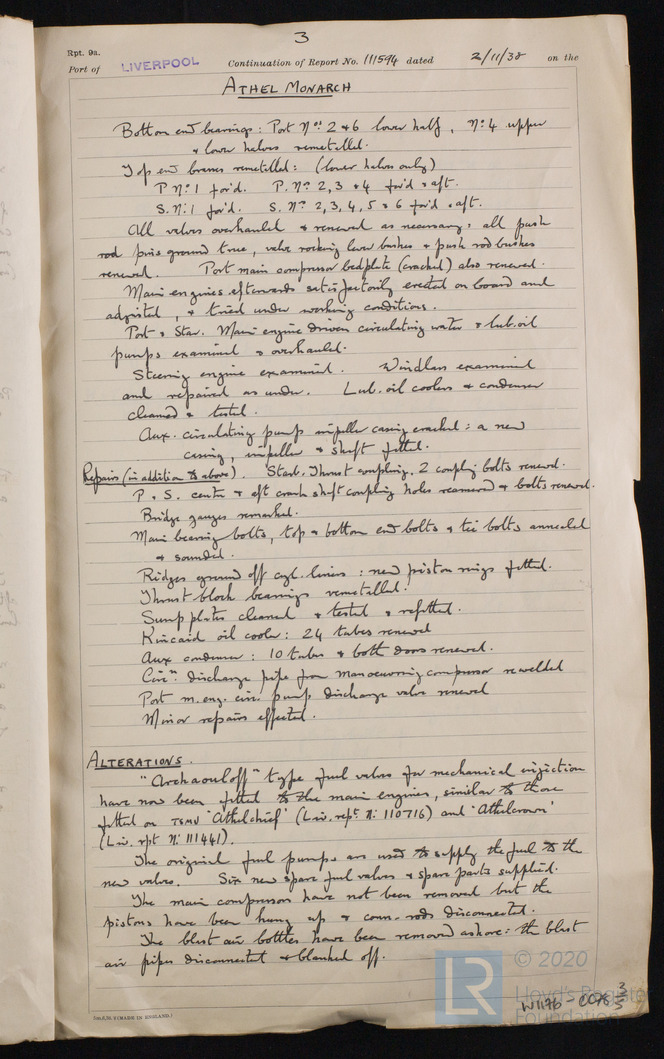 3
Rpt. 9a.
Port of LIVERPOOL Continuation of Report No. 111594 dated 2/11/38 on the
ATHEL MONARCH
Bottom end bearings: Port Nos 2 & 6 lower half, No 4 upper
& lower halves remetalled.
Top end brasses remetalled: (lower halves only)
P No 1 for'd. P. Nos 2, 3 & 4 for'd & aft.
S. No 1 for'd. S. Nos 2, 3, 4, 5 & 6 for'd & aft.
All valves overhauled & renewed as necessary, all push
rod pins ground true, valve rocking lever bushes & push rod bushes
renewed. Port main compressor bedplate (cracked) also renewed.
Main engines afterwards satisfactorily erected on board and
adjusted, & tried under working conditions.
Port & Star. Main engine driven circulating water & lub. oil
pumps examined & overhauled.
Steering engine examined. Windlass examined
and repaired as under. Lub. oil coolers & condenser
cleaned & tested.
Aux. circulating pump impeller casing cracked: a new
casing, impeller & shaft fitted.
Repairs (in addition to above). Starb. Thrust coupling, 2 coupling bolts renewed.
P. & S. centre & aft crank shaft coupling holes reamered & bolts renewed.
Bridge gauges remarked.
Main bearing bolts, top & bottom end bolts & tie bolts annealed
& sounded.
Ridges ground off cyl. liners: new piston rings fitted.
Thrust block bearings remetalled.
Sump plates cleaned & tested & refitted.
Kincaid oil cooler: 24 tubes renewed
Aux condenser: 10 tubes & both doors renewed.
Circn. discharge pipe from manoeuvring compressor rewelded
Port m. eng. circ. pump discharge valve renewed
Minor repairs effected.
ALTERATIONS.
"Archaouloff" type fuel valves for mechanical injection
have now been fitted to the main engines, similar to those
fitted on TSMV 'Athelchief' (Liv. rept No 110716) and 'Athelcrown'
(Liv. rpt No 111441).
The original fuel pumps are used to supply the fuel to the
new valves. Six new spare fuel valves & spare parts supplied.
The main compressors have not been removed but the
pistons have been hung up & conn-rods disconnected.
The blast air bottles have been removed ashore: the blast
air pipes disconnected & blanked off.
LR © 2020
Lloyd's Register
Foundation
W1176-0078 3/5